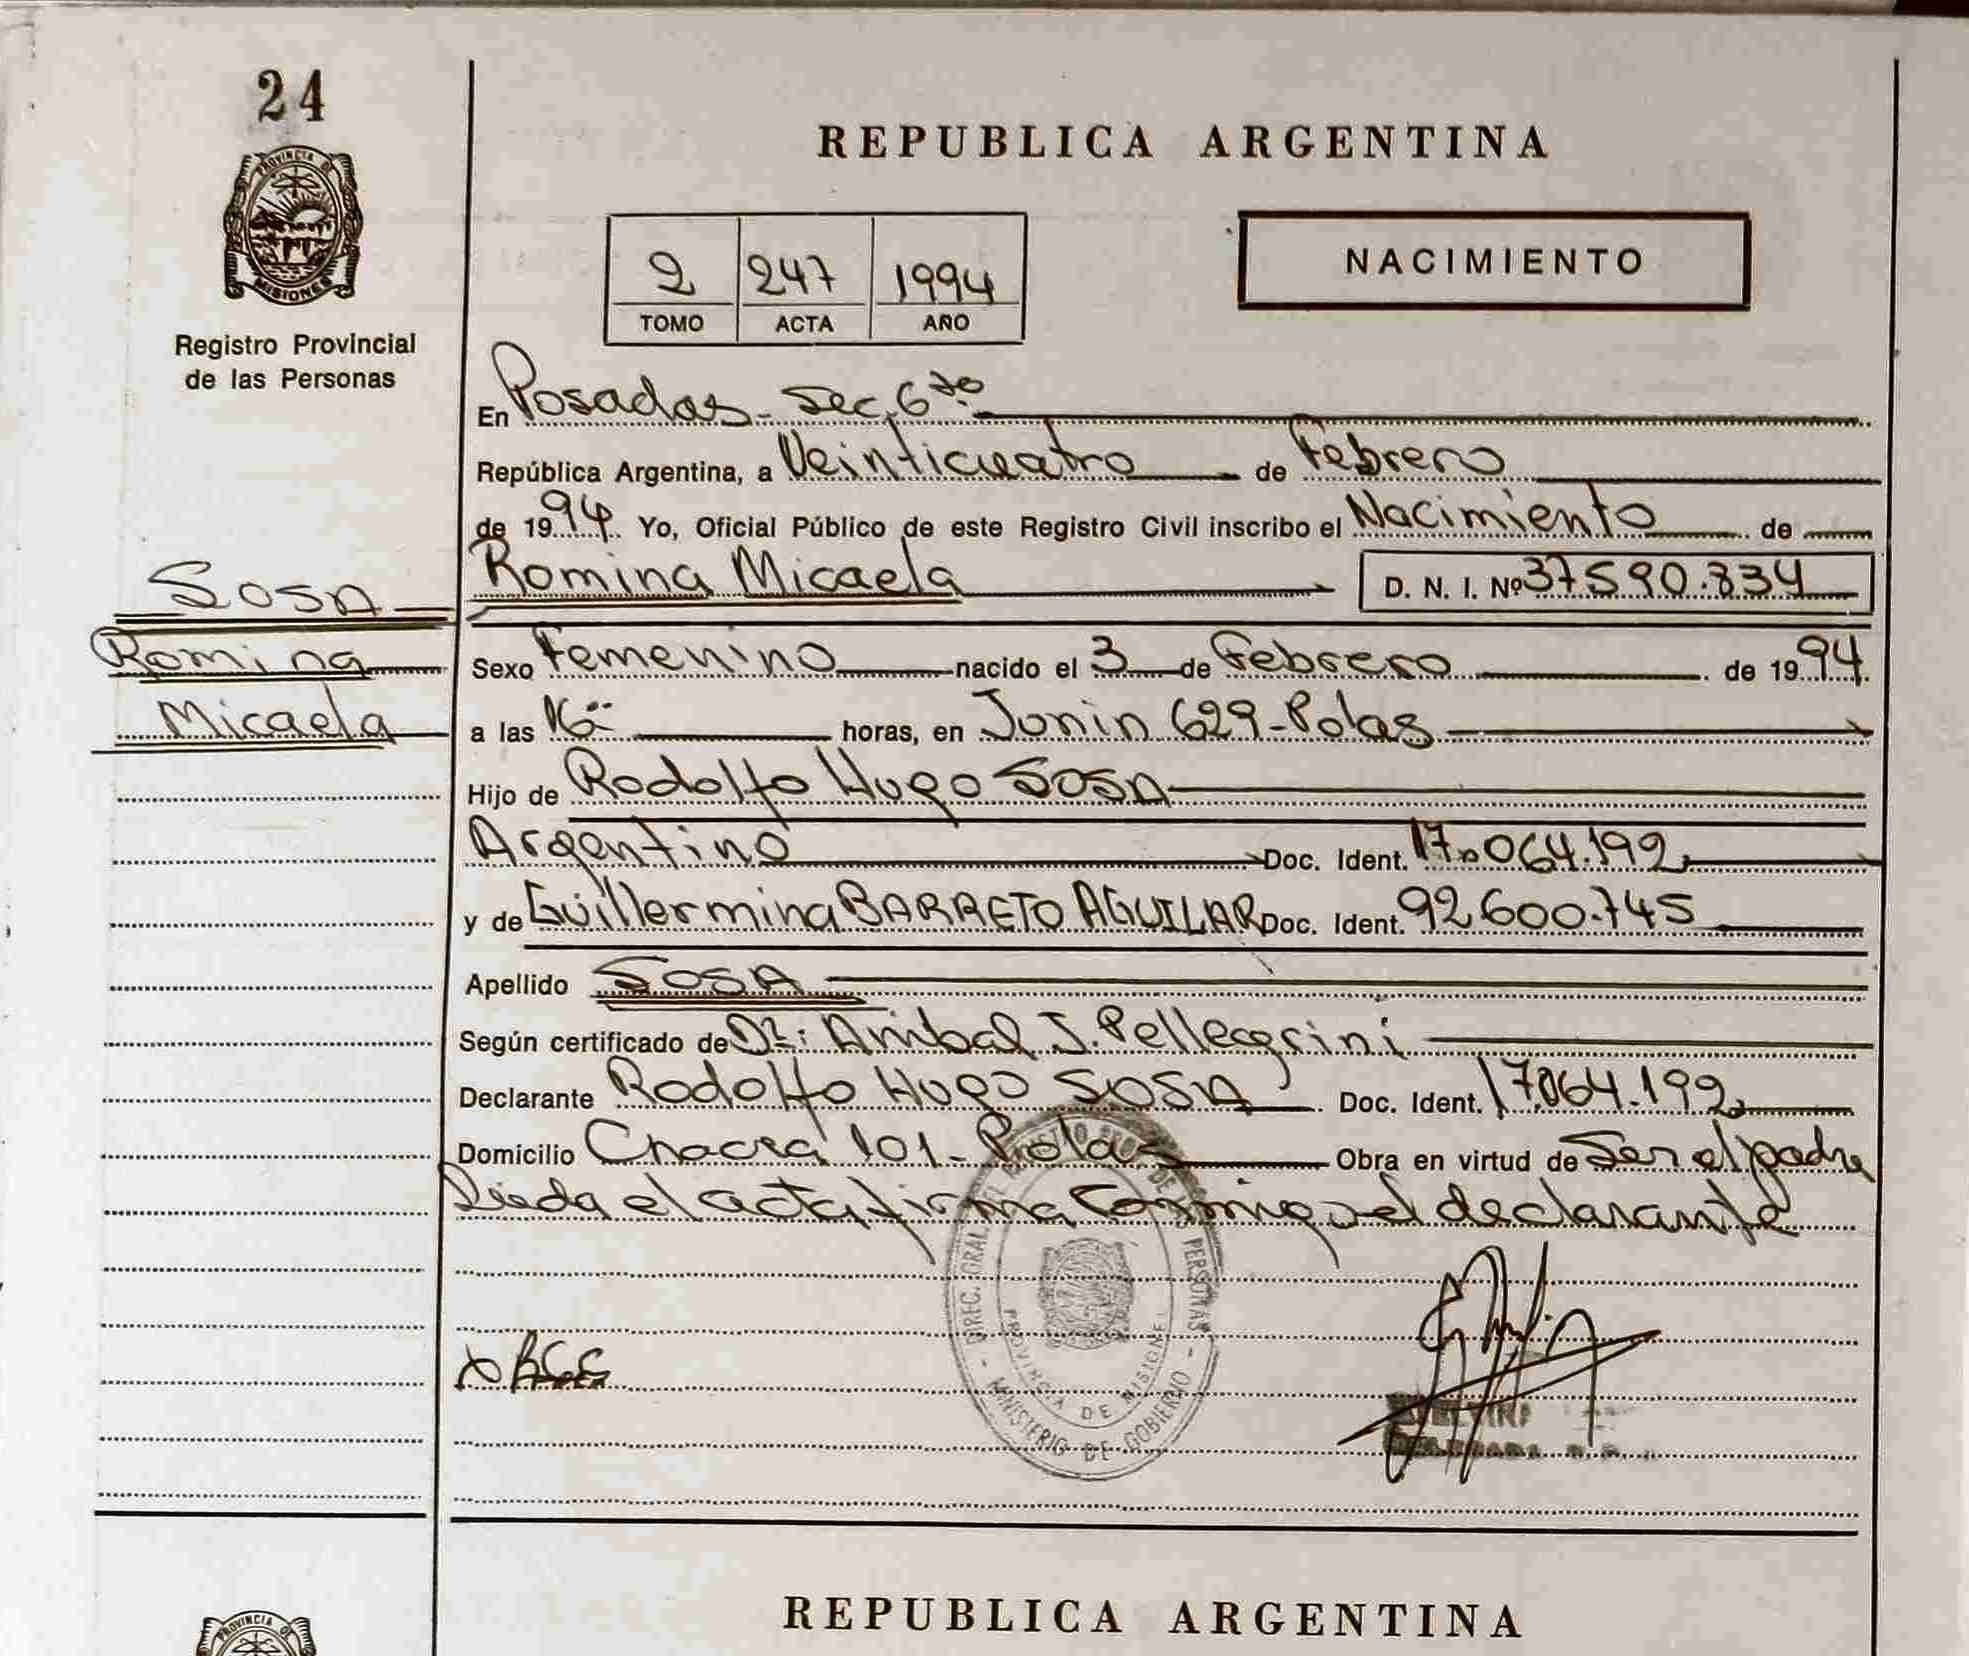 24
PROVINCIA DE
MISIONES
Registro Provincial
de las Personas
REPUBLICA ARGENTINA
2 247 1994
TOMO ACTA AÑO
NACIMIENTO
En Posadas - Sec. 6ta
República Argentina, a Veinticuatro de Febrero
de 1994 Yo, Oficial Público de este Registro Civil inscribo el Nacimiento de
Romina Micaela D. N. I. Nº 37590.834
SOSA
Romina
Micaela
Sexo Femenino nacido el 3 de Febrero de 1994
a las 16 horas, en Junin 629 - Pdas
Hijo de Rodolfo Hugo SOSA
Argentino Doc. Ident. 17.064.192
y de Guillermina BARRETO AGUILAR Doc. Ident. 92.600.745
Apellido SOSA
Según certificado de Dr: Anibal J. Pellegrini
Declarante Rodolfo Hugo SOSA Doc. Ident. 17.064.192
Domicilio Chacra 101 - Pdas Obra en virtud de Ser el padre
Leida el acta firma conmigo el declarante
DIREC. GRAL. DEL REGISTRO PROV. DE LAS PERSONAS
PROVINCIA DE MISIONES
MINISTERIO DE GOBIERNO
PROVINCIA DE
REPUBLICA ARGENTINA